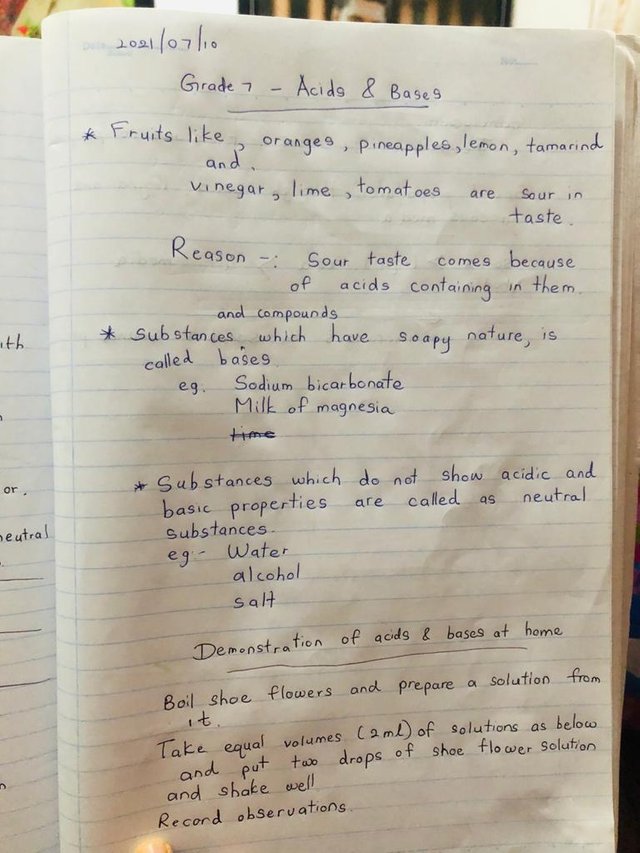 2021/07/10
Grade 7 - Acids & Bases
* Fruits like, oranges, pineapples, lemon, tamarind
and.
vinegar, lime, tomatoes are sour in
taste.
Reason -: Sour taste comes because
of acids containing in them.
and compounds
* Substances which have soapy nature, is
called bases.
eg. Sodium bicarbonate
Milk of magnesia
* Substances which do not show acidic and
basic properties are called as neutral
substances.
eg - Water
alcohol
salt
Demonstration of acids & bases at home
Boil shoe flowers and prepare a solution from
it.
Take equal volumes (2ml) of solutions as below
and put two drops of shoe flower solution
and shake well
Record observations.
or.
neutral